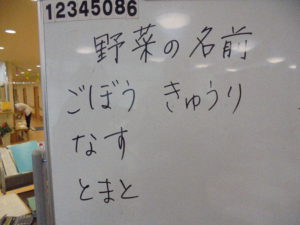 12345086
野菜の名前
ごぼう きゅうり
なす
とまと